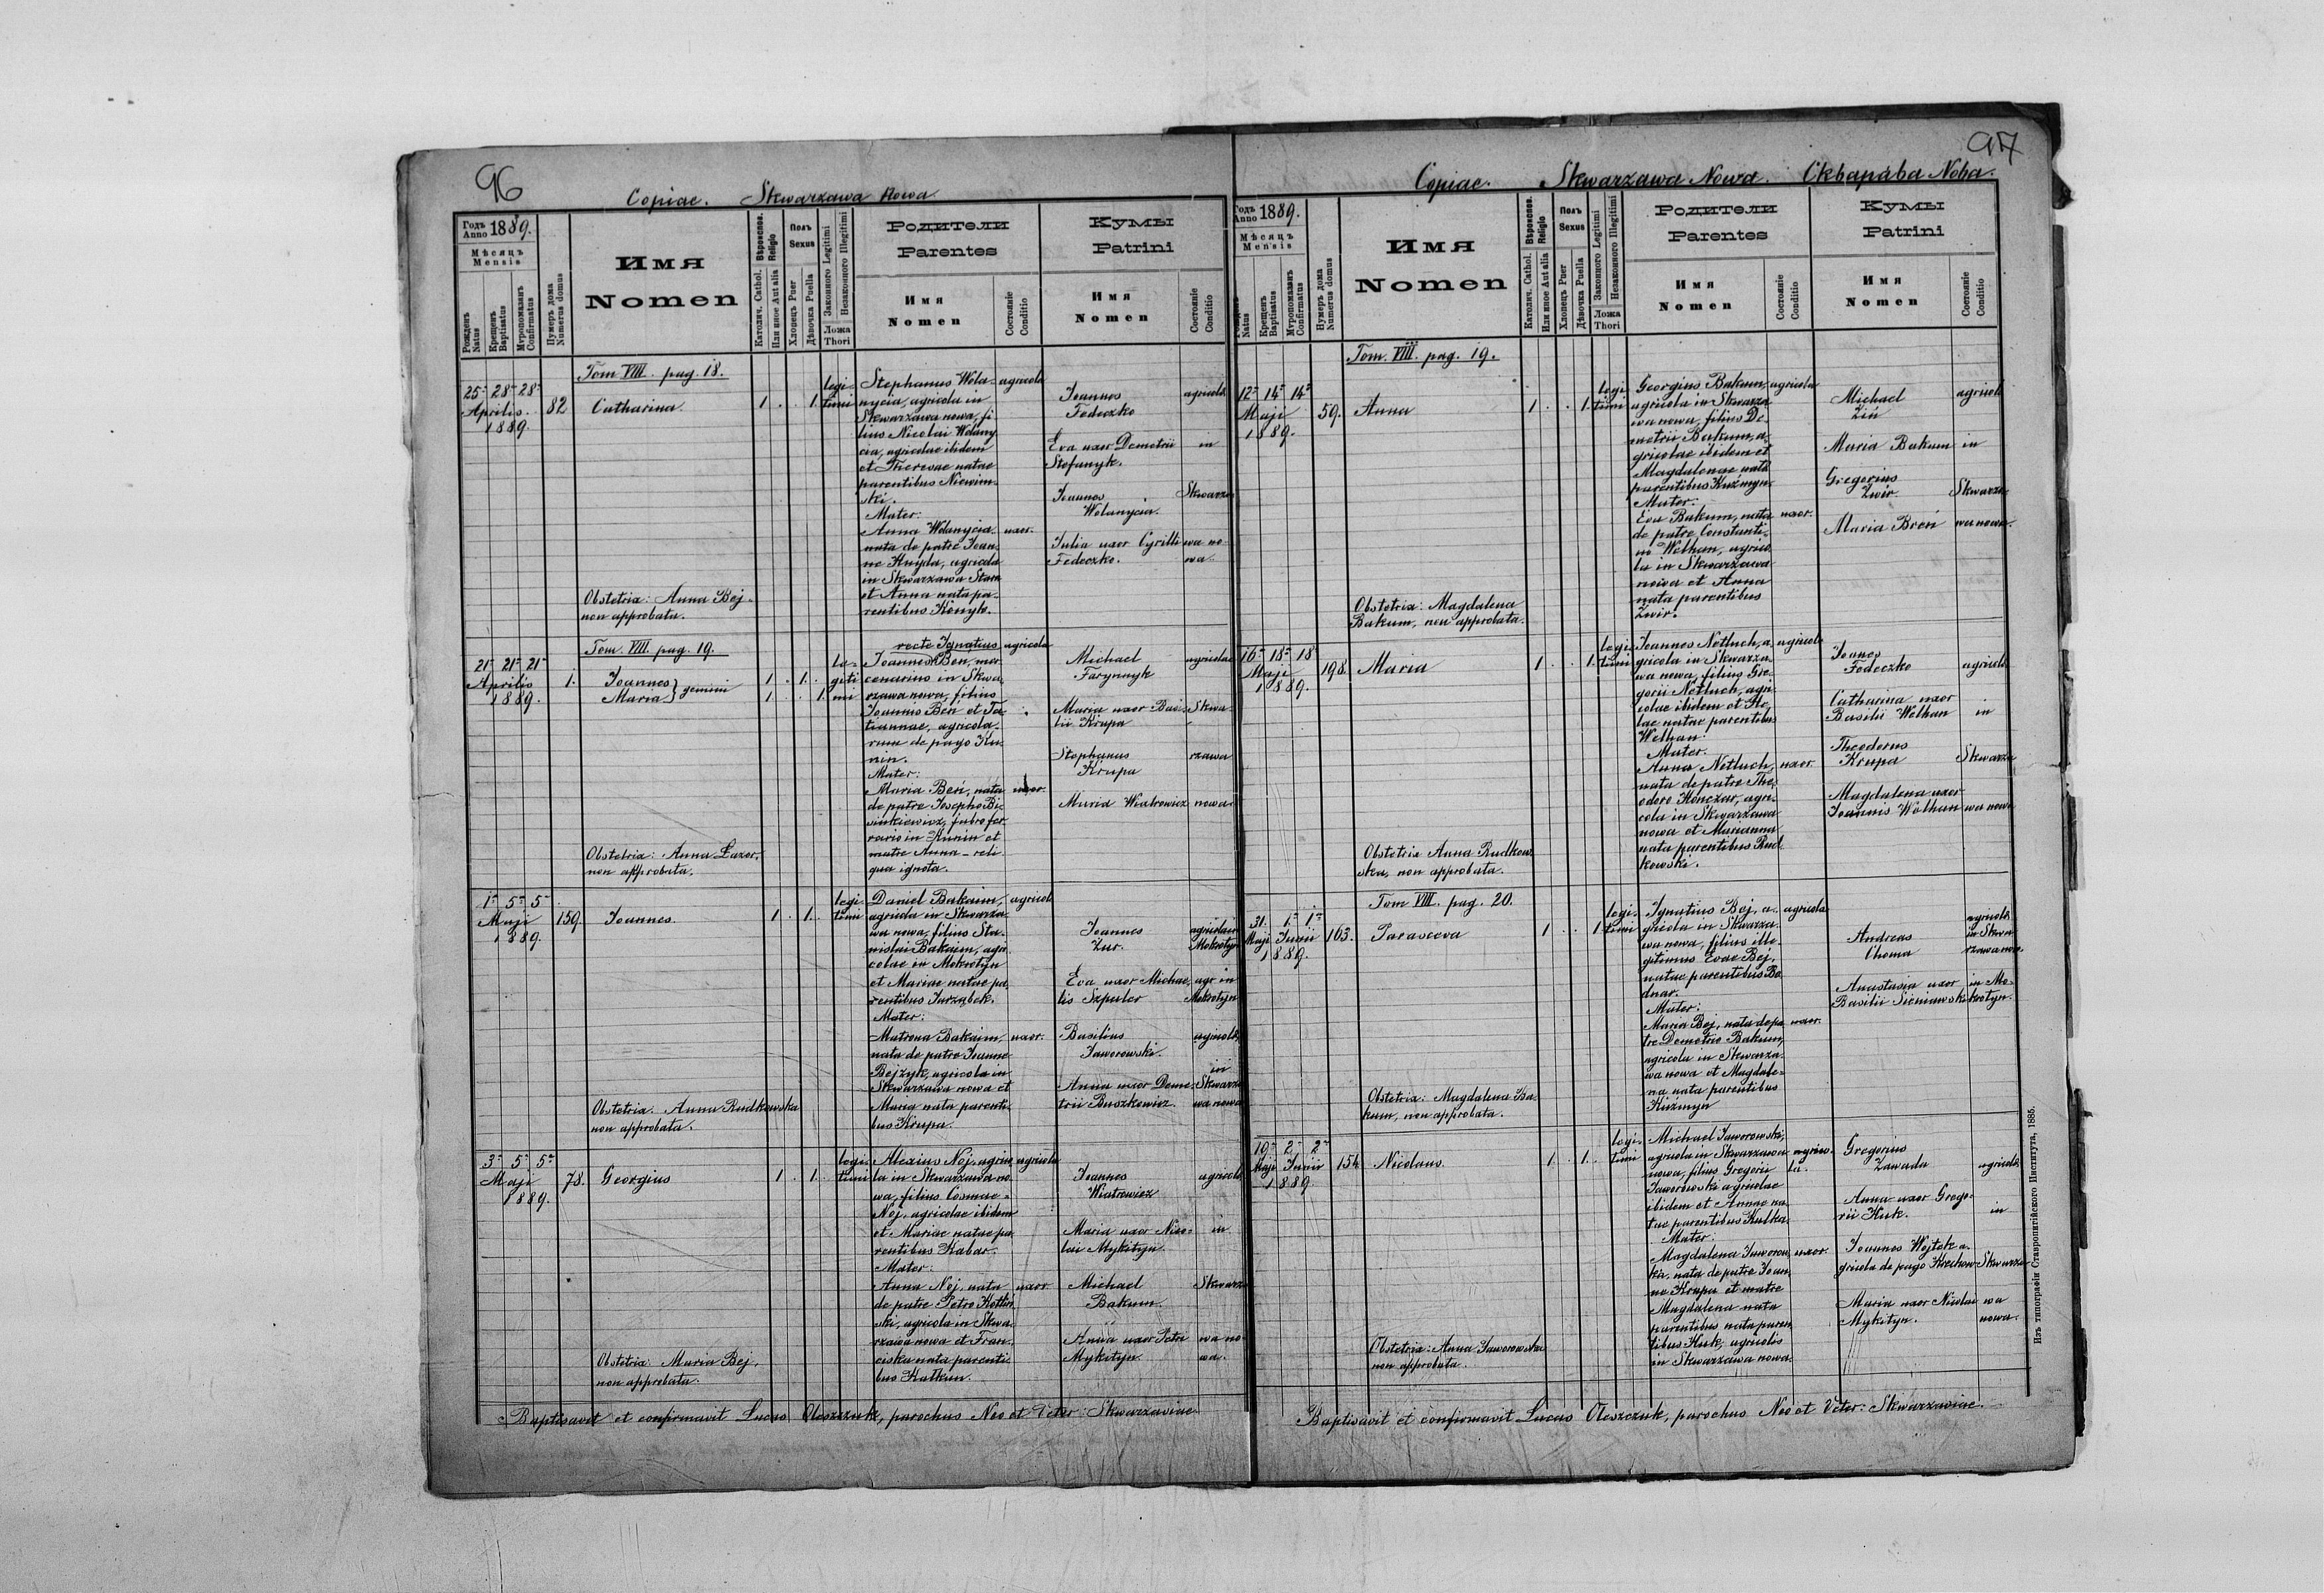 96
Copiae. Skwarzawa Nowa
Годъ Anno 1889.
Мѣсяцъ Mensis
Рожденъ Natus
Крещенъ Baptisatus
Мѵропомазанъ Confirmatus
Нумеръ дома Numerus domus
Имя
Nomen
Вѣроиспов. Religio
Католич. Cathol.
Или иное Aut alia
Полъ Sexus
Хлопецъ Puer
Дѣвочка Puella
Законного Legitimi
Незаконного Illegitimi
Ложа Thori
Родители
Parentes
Имя Nomen
Состояніе Conditio
Кумы
Patrini
Имя Nomen
Состояніе Conditio
Tom VIII. pag. 18.
25 28 28
Aprilis
1889.
82
Catharina
1 . . 1.
legi-
timi
Stephanus Wola-
nycia, agricola in
Skwarzawa nowa, fi
lius Nicolai Wolany
cia, agricolae ibidem
et Theresae natae
parentibus Niewim-
ski.
Mater:
Anna Wolanycia
nata de patre Joan-
ne Knyda, agricola
in Skwarzawa Stara
et Anna nata pa-
rentibus Konyk.
agricola
uxor.
Joannes
Fedeczko
Eva uxor Demetrii
Stefanyk.
Joannes
Wolanycia.
Julia uxor Cyrilli
Fedeczko.
agricolae
in
Skwarza
wa no-
wa.
Obstetrix: Anna Bej
non approbata.
Tom. VIII. pag. 19.
21 21 21
Aprilis
1889.
1.
Joannes
Maria } gemini
1. . 1.
1. . 1.
le-
giti
mi
recte Ignatius
Joannes Beń, mer
cenarius in Skwa
rzawa nowa, filius
Joannis Beń et Ta-
tiannae, agricola-
rum de pago Ku-
nin.
Mater:
Maria Beń, nata
de patre Josepho Bi-
sinkiewicz, fabro fer-
rario in Kunin et
matre Anna - reli
qua ignota.
agricola
uxor.
Michael
Farynnyk
Maria uxor Basi-
lii Krupa
Stephanus
Krupa
Maria Wiatrowicz
agricolae
Skwa-
rzawa
nowa
Obstetrix: Anna Lazor,
non approbata.
1 5 5
Maji
1889.
159.
Joannes.
1 . 1.
legi-
timi
Daniel Bakaim,
agricola in Skwarza
wa nowa, filius Sta-
nislai Bakaim, agri
colae in Mokrotyn
et Mariae natae pa
rentibus Jarząbek.
Mater:
Matrona Bakaim,
nata de patre Joanne
Bejzyk, agricola in
Skwarzawa nowa et
Maria nata parenti
bus Krupa.
agricola
uxor.
Joannes
Zur.
Eva uxor Michae
lis Szpuler
Basilius
Jaworowski.
Anna uxor Deme-
trii Buszkowicz.
agricola in
Mokrotyn
agr in
Mokrotyn
agricola
in
Skwarza
wa nowa
Obstetrix. Anna Rudkowska
non approbata.
3 5 5
Maji
1889.
78.
Georgius
1 . 1.
legi-
timi
Alexius Noj, agrico
la in Skwarzawa no
wa, filius Cosmae
Noj, agricolae ibidem
et Mariae natae pa
rentibus Kabar.
Mater:
Anna Noj, nata
de patre Petro Kotlin
ski, agricola in Skwa
rzawa nowa et Fran-
ciska nata parenti
bus Kalkun.
agricola
uxor
Joannes
Wiatrowicz
Maria uxor Nico-
lai Mykityn
Michael
Bakum.
Anna uxor Petri
Mykityn.
agricola
in
Skwarza
wa no
wa.
Obstetrix Maria Bej,
non approbata.
Baptisavit et confirmavit Lucas Oleszczuk, parochus Neo et Veter: Skwarzaviae
97
Copiae. Skwarzawa Nowa. Сквapaва Nова.
Годъ Anno 1889.
Мѣсяцъ Mensis
Natus
Крещенъ Baptisatus
Мѵропомазанъ Confirmatus
Нумеръ дома Numerus domus
Имя
Nomen
Вѣроиспов. Religio
Католич. Cathol.
Или иное Aut alia
Полъ Sexus
Хлопецъ Puer
Дѣвочка Puella
Законного Legitimi
Незаконного Illegitimi
Ложа Thori
Родители
Parentes
Имя Nomen
Состояніе Conditio
Кумы
Patrini
Имя Nomen
Состояніе Conditio
Tom. VIII. pag. 19.
12 14 14
Maji
1889.
59.
Anna
1 . . 1.
legi-
timi
Georgius Bakum,
agricola in Skwarza
wa nowa, filius De-
metrii Bakum, a-
gricolae ibidem et
Magdalenae nata
parentibus Kuźmyn.
Mater:
Eva Bakum, nata
de patre Constanti-
no Welhan, agrico
la in Skwarzawa
nowa et Anna
nata parentibus
Zwir.
agricola
uxor.
Michael
Ziń
Maria Bakum
Gregorius
Zwir
Maria Broń
agricola
in
Skwarza-
wa nowa.
Obstetrix: Magdalena
Bakum, non approbata.
16 18 18
Maji
1889.
198.
Maria
1 . . 1.
legi-
timi
Joannes Netluch, a-
gricola in Skwarza-
wa nowa, filius Gre-
gorii Netluch, agri-
colae ibidem et He-
lae natae parentibus
Welhan.
Mater:
Anna Netluch,
nata de patre The-
odoro Konczar, agri-
cola in Skwarzawa
nowa et Marianna
nata parentibus Rud
kowski.
agricola
uxor
Joannes
Fedeczko
Catharina uxor
Basilii Welhan
Theodorus
Krupa
Magdalena uxor
Joannis Welhan
agricola
in
Skwarza
wa nowa
Obstetrix Anna Rudkow-
ska, non approbata.
Tom VIII. pag. 20.
31. 1 1
Maji Junii
1889.
163.
Parasceva
1 . . 1.
legi-
timi
Ignatius Bej, a-
gricola in Skwarza-
wa nowa, filius ille-
gitimus Evae Bej,
natae parentibus Bo
dnar.
Mater:
Maria Bej, nata de pa
tre Demetrio Bakum,
agricola in Skwarza-
wa nowa et Magdale-
na nata parentibus
Kuźmyn
agricola
uxor.
Andreas
Choma
Anastasia uxor
Basilii Sieniawski
agricola
in Skwa
rzawa nowa
in Mo-
krotyn.
Obstetrix: Magdalena Ba-
kum, non approbata.
19 2 2
Maji Junii
1889
154
Nicolaus
1 . 1.
legi-
timi
Michael Jaworowski,
agricola in Skwarzawa
nowa, filius Gregorii
Jaworowski agricolae
ibidem et Annae na-
tae parentibus Kulka.
Mater:
Magdalena Jaworow
ska, nata de patre Joan-
ne Krupa et matre
Magdalena nata
parentibus nata paren
tibus Kuk, agricolis
in Skwarzawa nowa.
agrico-
la.
uxor
Gregorius
Zawada
Anna uxor Grego-
rii Kuk.
Joannes Wojtek a-
gricola de pago Krechow
Maria uxor Nicolai
Mykityn.
agricola
in
Skwarza-
wa
nowa.
Obstetrix: Anna Jaworowska
non approbata.
Baptisavit et confirmavit Lucas Oleszczuk, parochus Neo et Veter: Skwarzaviae.
Изъ типографіи Ставропигійского Института, 1885.